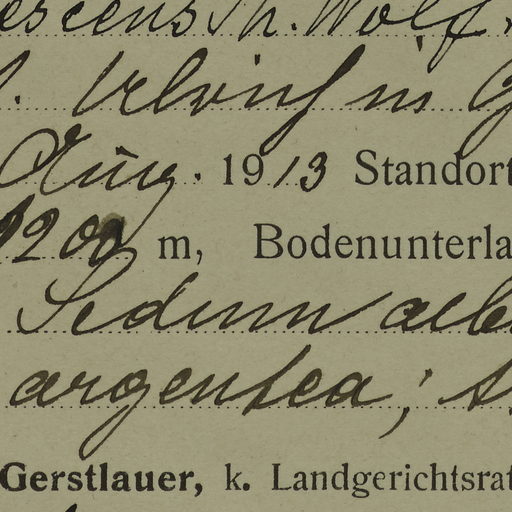 escens Th. Wolf.
St. Ulrich in G
Aug. 1913 Standort
1200 m, Bodenunterla
Sedum alb
argentea; 
Gerstlauer, k. Landgerichtsrat